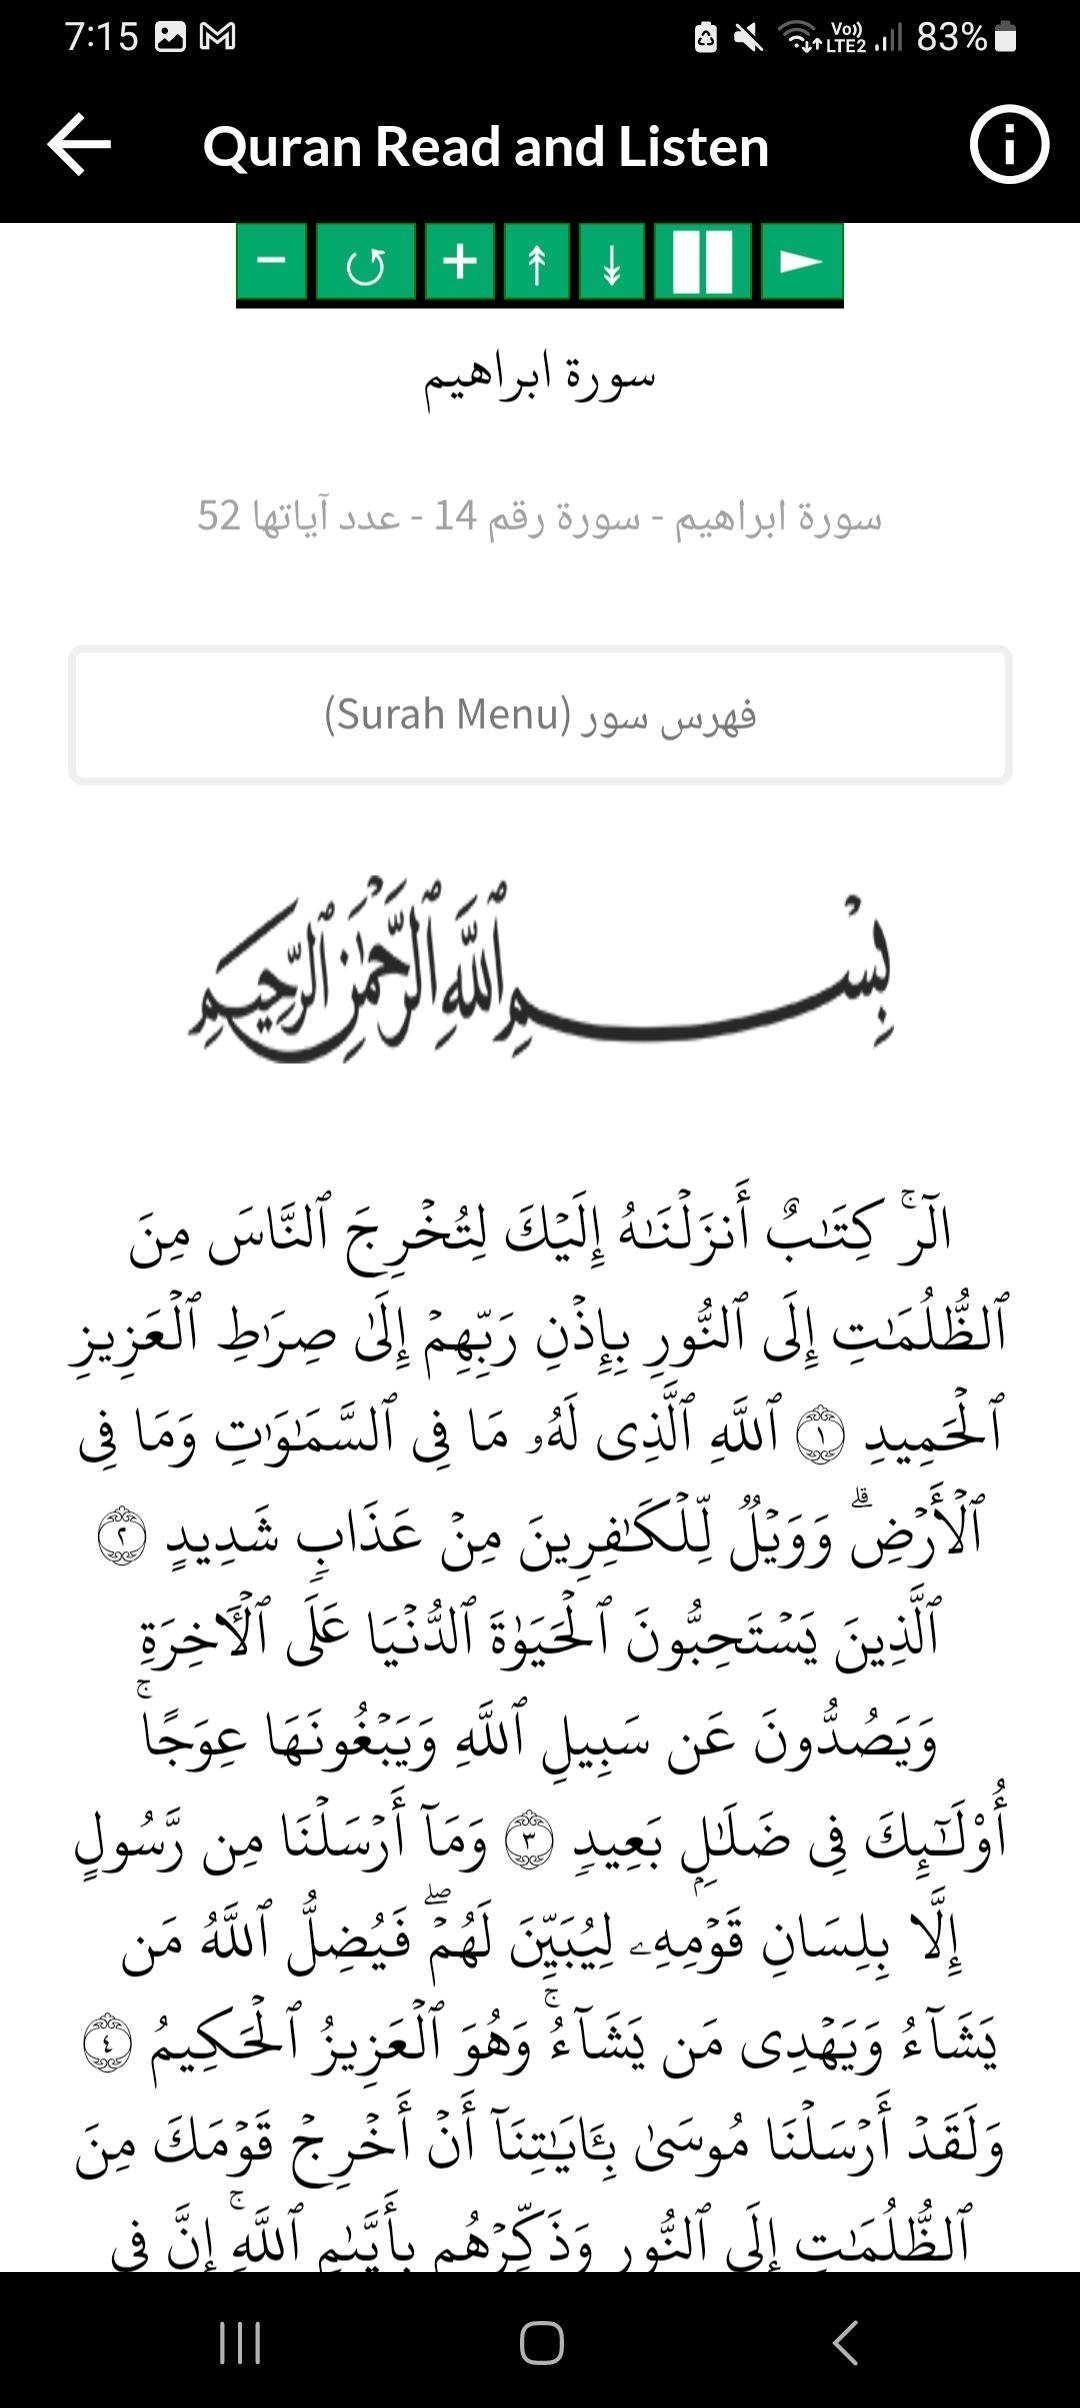 7:15
Vo)) LTE2 83%
Quran Read and Listen
سورة ابراهيم
سورة ابراهيم - سورة رقم 14 - عدد آياتها 52
فهرس سور (Surah Menu)
بِسْمِ ٱللَّهِ ٱلرَّحْمَٰنِ ٱلرَّحِيمِ
الٓرۚ كِتَٰبٌ أَنزَلْنَٰهُ إِلَيْكَ لِتُخْرِجَ ٱلنَّاسَ مِنَ
ٱلظُّلُمَٰتِ إِلَى ٱلنُّورِ بِإِذْنِ رَبِّهِمْ إِلَىٰ صِرَٰطِ ٱلْعَزِيزِ
ٱلْحَمِيدِ ١ ٱللَّهِ ٱلَّذِى لَهُۥ مَا فِى ٱلسَّمَٰوَٰتِ وَمَا فِى
ٱلْأَرْضِۗ وَوَيْلٌ لِّلْكَٰفِرِينَ مِنْ عَذَابٍ شَدِيدٍ ٢
ٱلَّذِينَ يَسْتَحِبُّونَ ٱلْحَيَوٰةَ ٱلدُّنْيَا عَلَى ٱلْءَاخِرَةِ
وَيَصُدُّونَ عَن سَبِيلِ ٱللَّهِ وَيَبْغُونَهَا عِوَجًاۚ
أُوْلَٰٓئِكَ فِى ضَلَٰلٍۭ بَعِيدٍ ٣ وَمَآ أَرْسَلْنَا مِن رَّسُولٍ
إِلَّا بِلِسَانِ قَوْمِهِۦ لِيُبَيِّنَ لَهُمْۖ فَيُضِلُّ ٱللَّهُ مَن
يَشَآءُ وَيَهْدِى مَن يَشَآءُۚ وَهُوَ ٱلْعَزِيزُ ٱلْحَكِيمُ ٤
وَلَقَدْ أَرْسَلْنَا مُوسَىٰ بِـَٔايَٰتِنَآ أَنْ أَخْرِجْ قَوْمَكَ مِنَ
ٱلظُّلُمَٰتِ إِلَى ٱلنُّورِ وَذَكِّرْهُم بِأَيَّىٰمِ ٱللَّهِۚ إِنَّ فِى